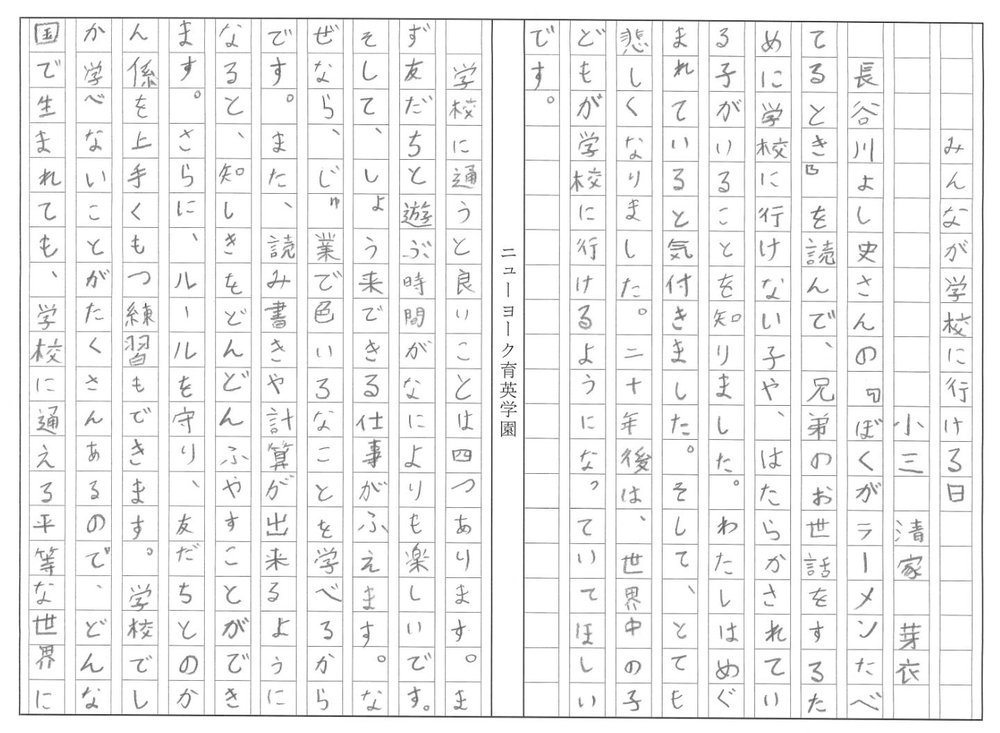 みんなが学校に行ける日
小三　清家　芽衣
長谷川よし史さんの『ぼくがラーメンたべ
てるとき』を読んで、兄弟のお世話をするた
めに学校に行けない子や、はたらかされてい
る子がいることを知りました。わたしはめぐ
まれていると気付きました。そして、とても
悲しくなりました。二十年後は、世界中の子
どもが学校に行けるようになっていてほしい
です。
ニューヨーク育英学園
学校に通うと良いことは四つあります。ま
ず友だちと遊ぶ時間がなによりも楽しいです。
そして、しょう来できる仕事がふえます。な
ぜなら、じゅ業で色いろなことを学べるから
です。また、読み書きや計算が出来るように
なると、知しきをどんどんふやすことができ
ます。さらに、ルールを守り、友だちとのか
ん係を上手くもつ練習もできます。学校でし
か学べないことがたくさんあるので、どんな
国で生まれても、学校に通える平等な世界に